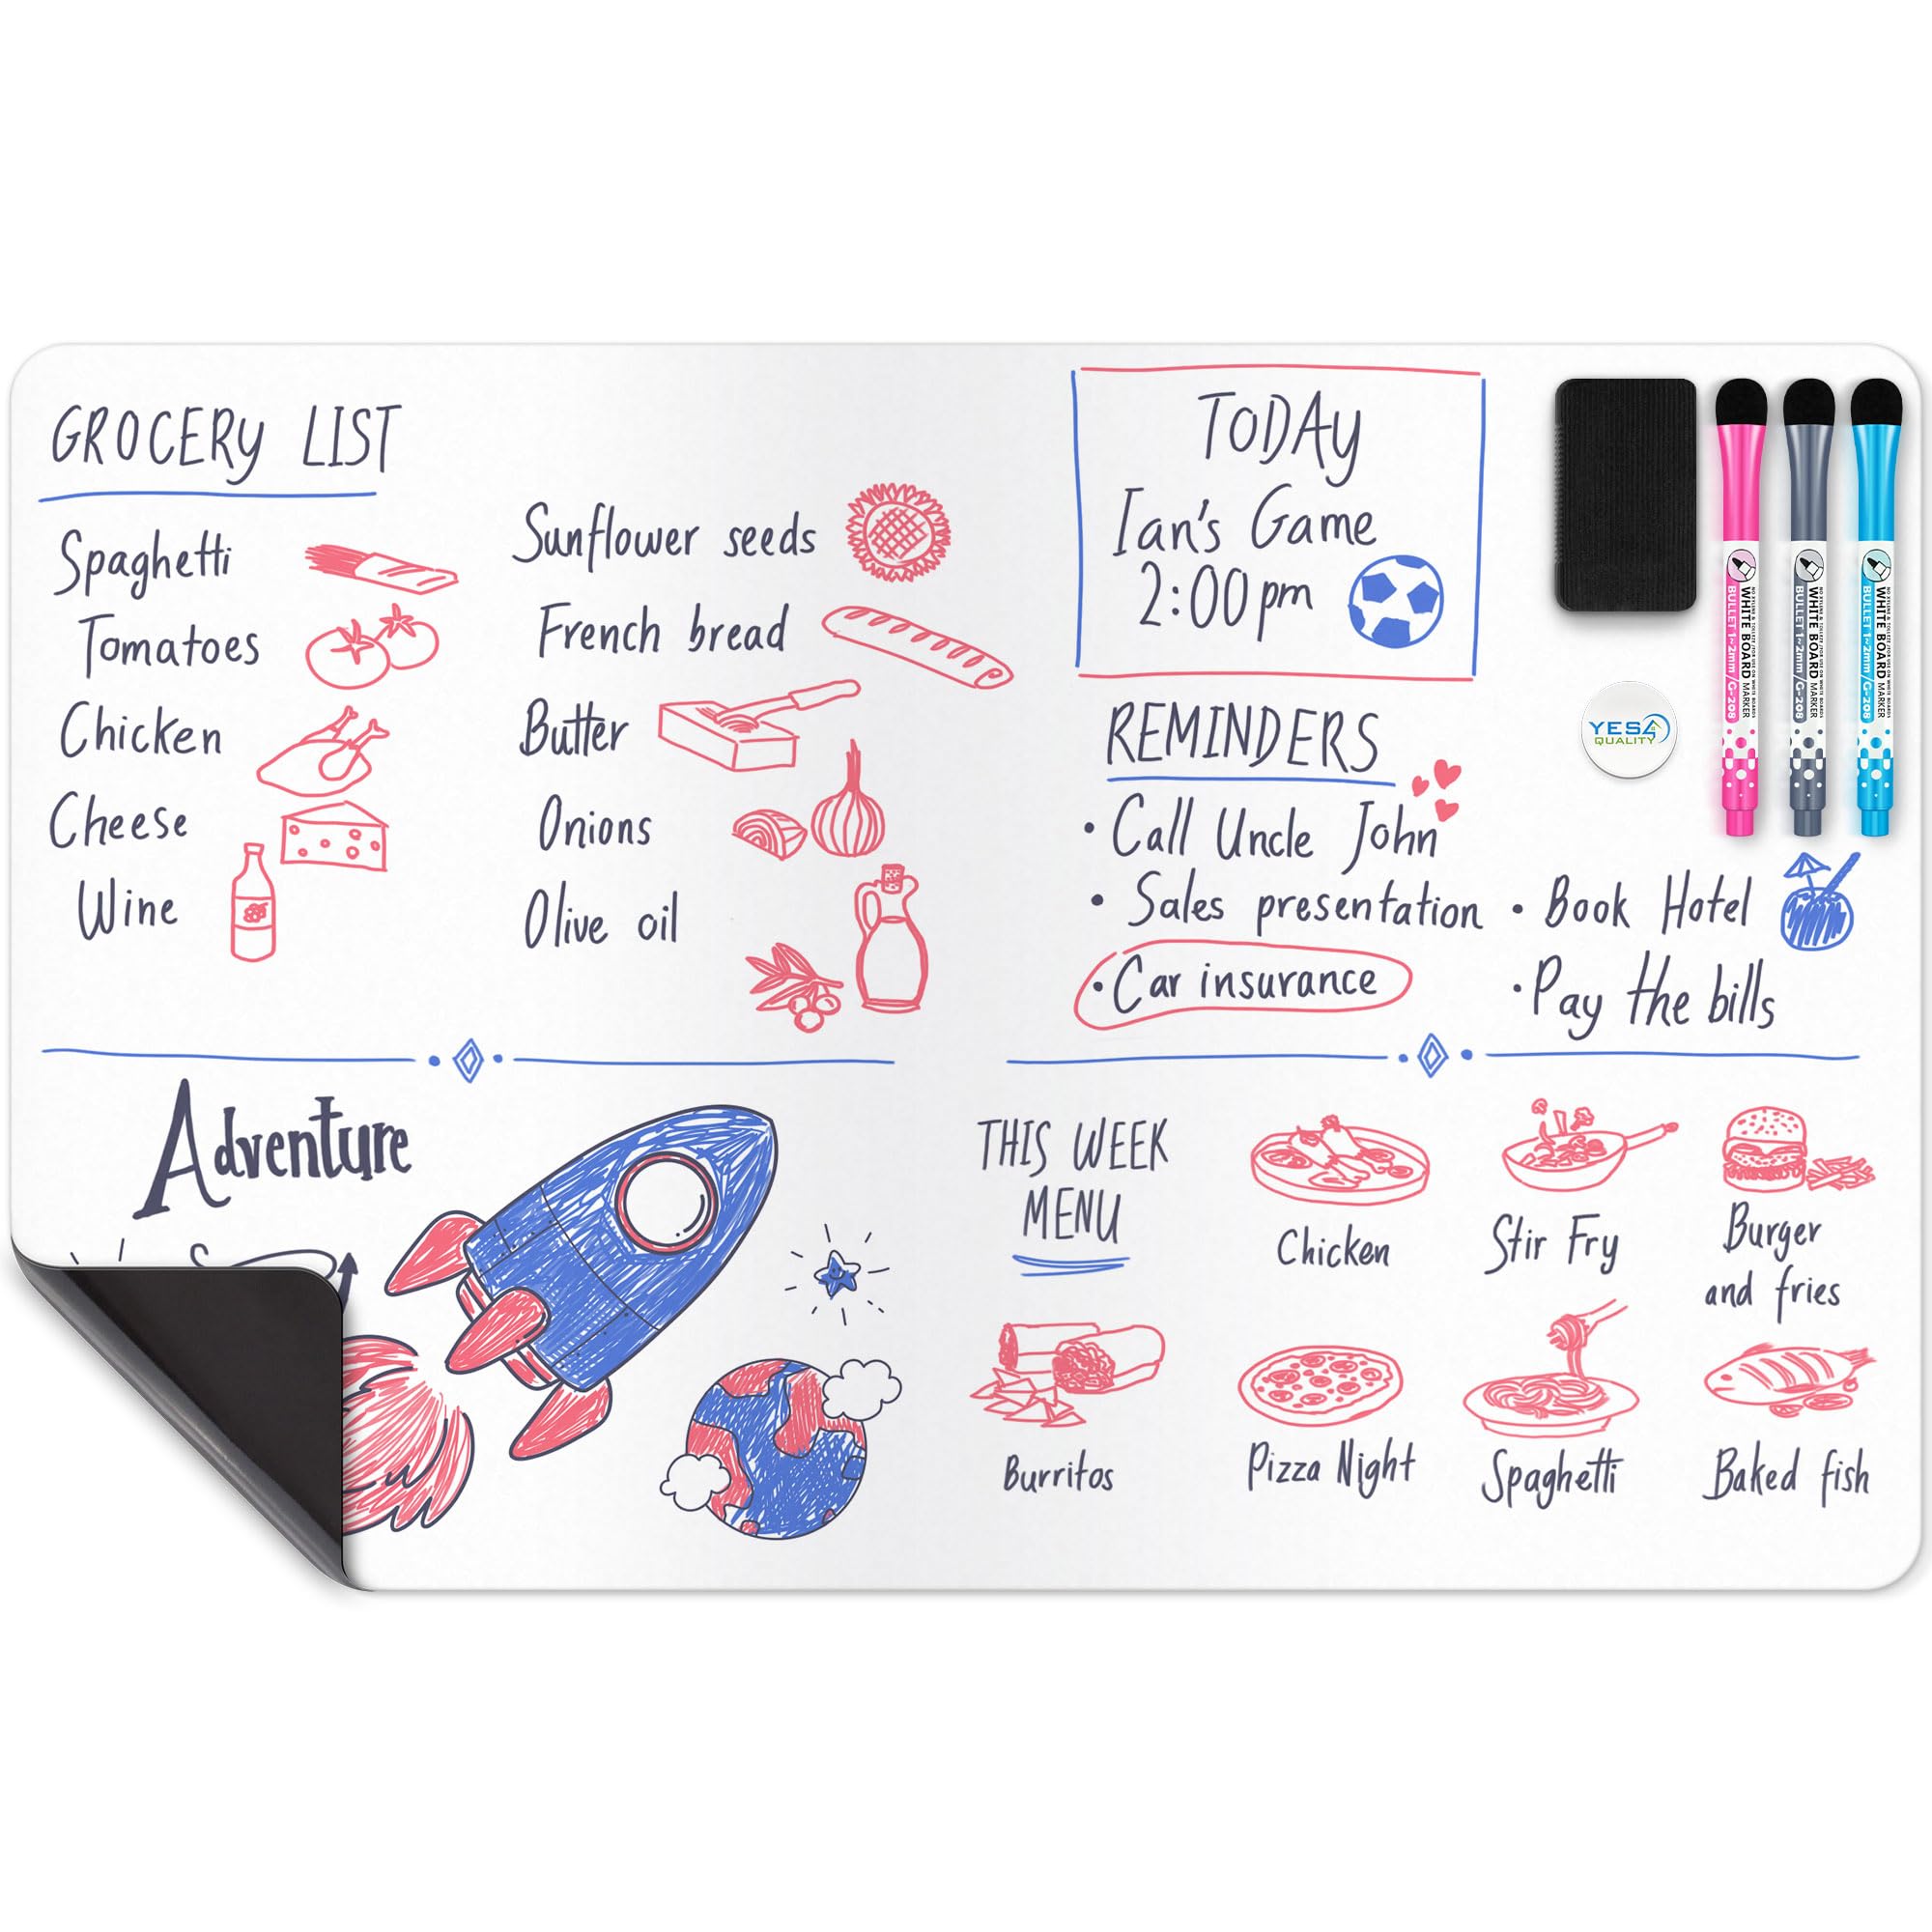 GROCERY LIST
Spaghetti
Tomatoes
Chicken
Cheese
Wine
Sunflower seeds
French bread
Butter
Onions
Olive oil
TODAY
Ian's Game
2:00pm
REMINDERS
• Call Uncle John
• Sales presentation
• Car insurance
• Book Hotel
• Pay the bills
YES4
QUALITY
WHITE BOARD MARKER
BULLET 1~2mm/G-208
WHITE BOARD MARKER
BULLET 1~2mm/G-208
WHITE BOARD MARKER
BULLET 1~2mm/G-208
Adventure
THIS WEEK
MENU
Chicken
Stir Fry
Burger
and fries
Burritos
Pizza Night
Spaghetti
Baked fish